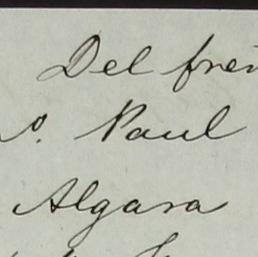 Del fren
o. Paul
Algara